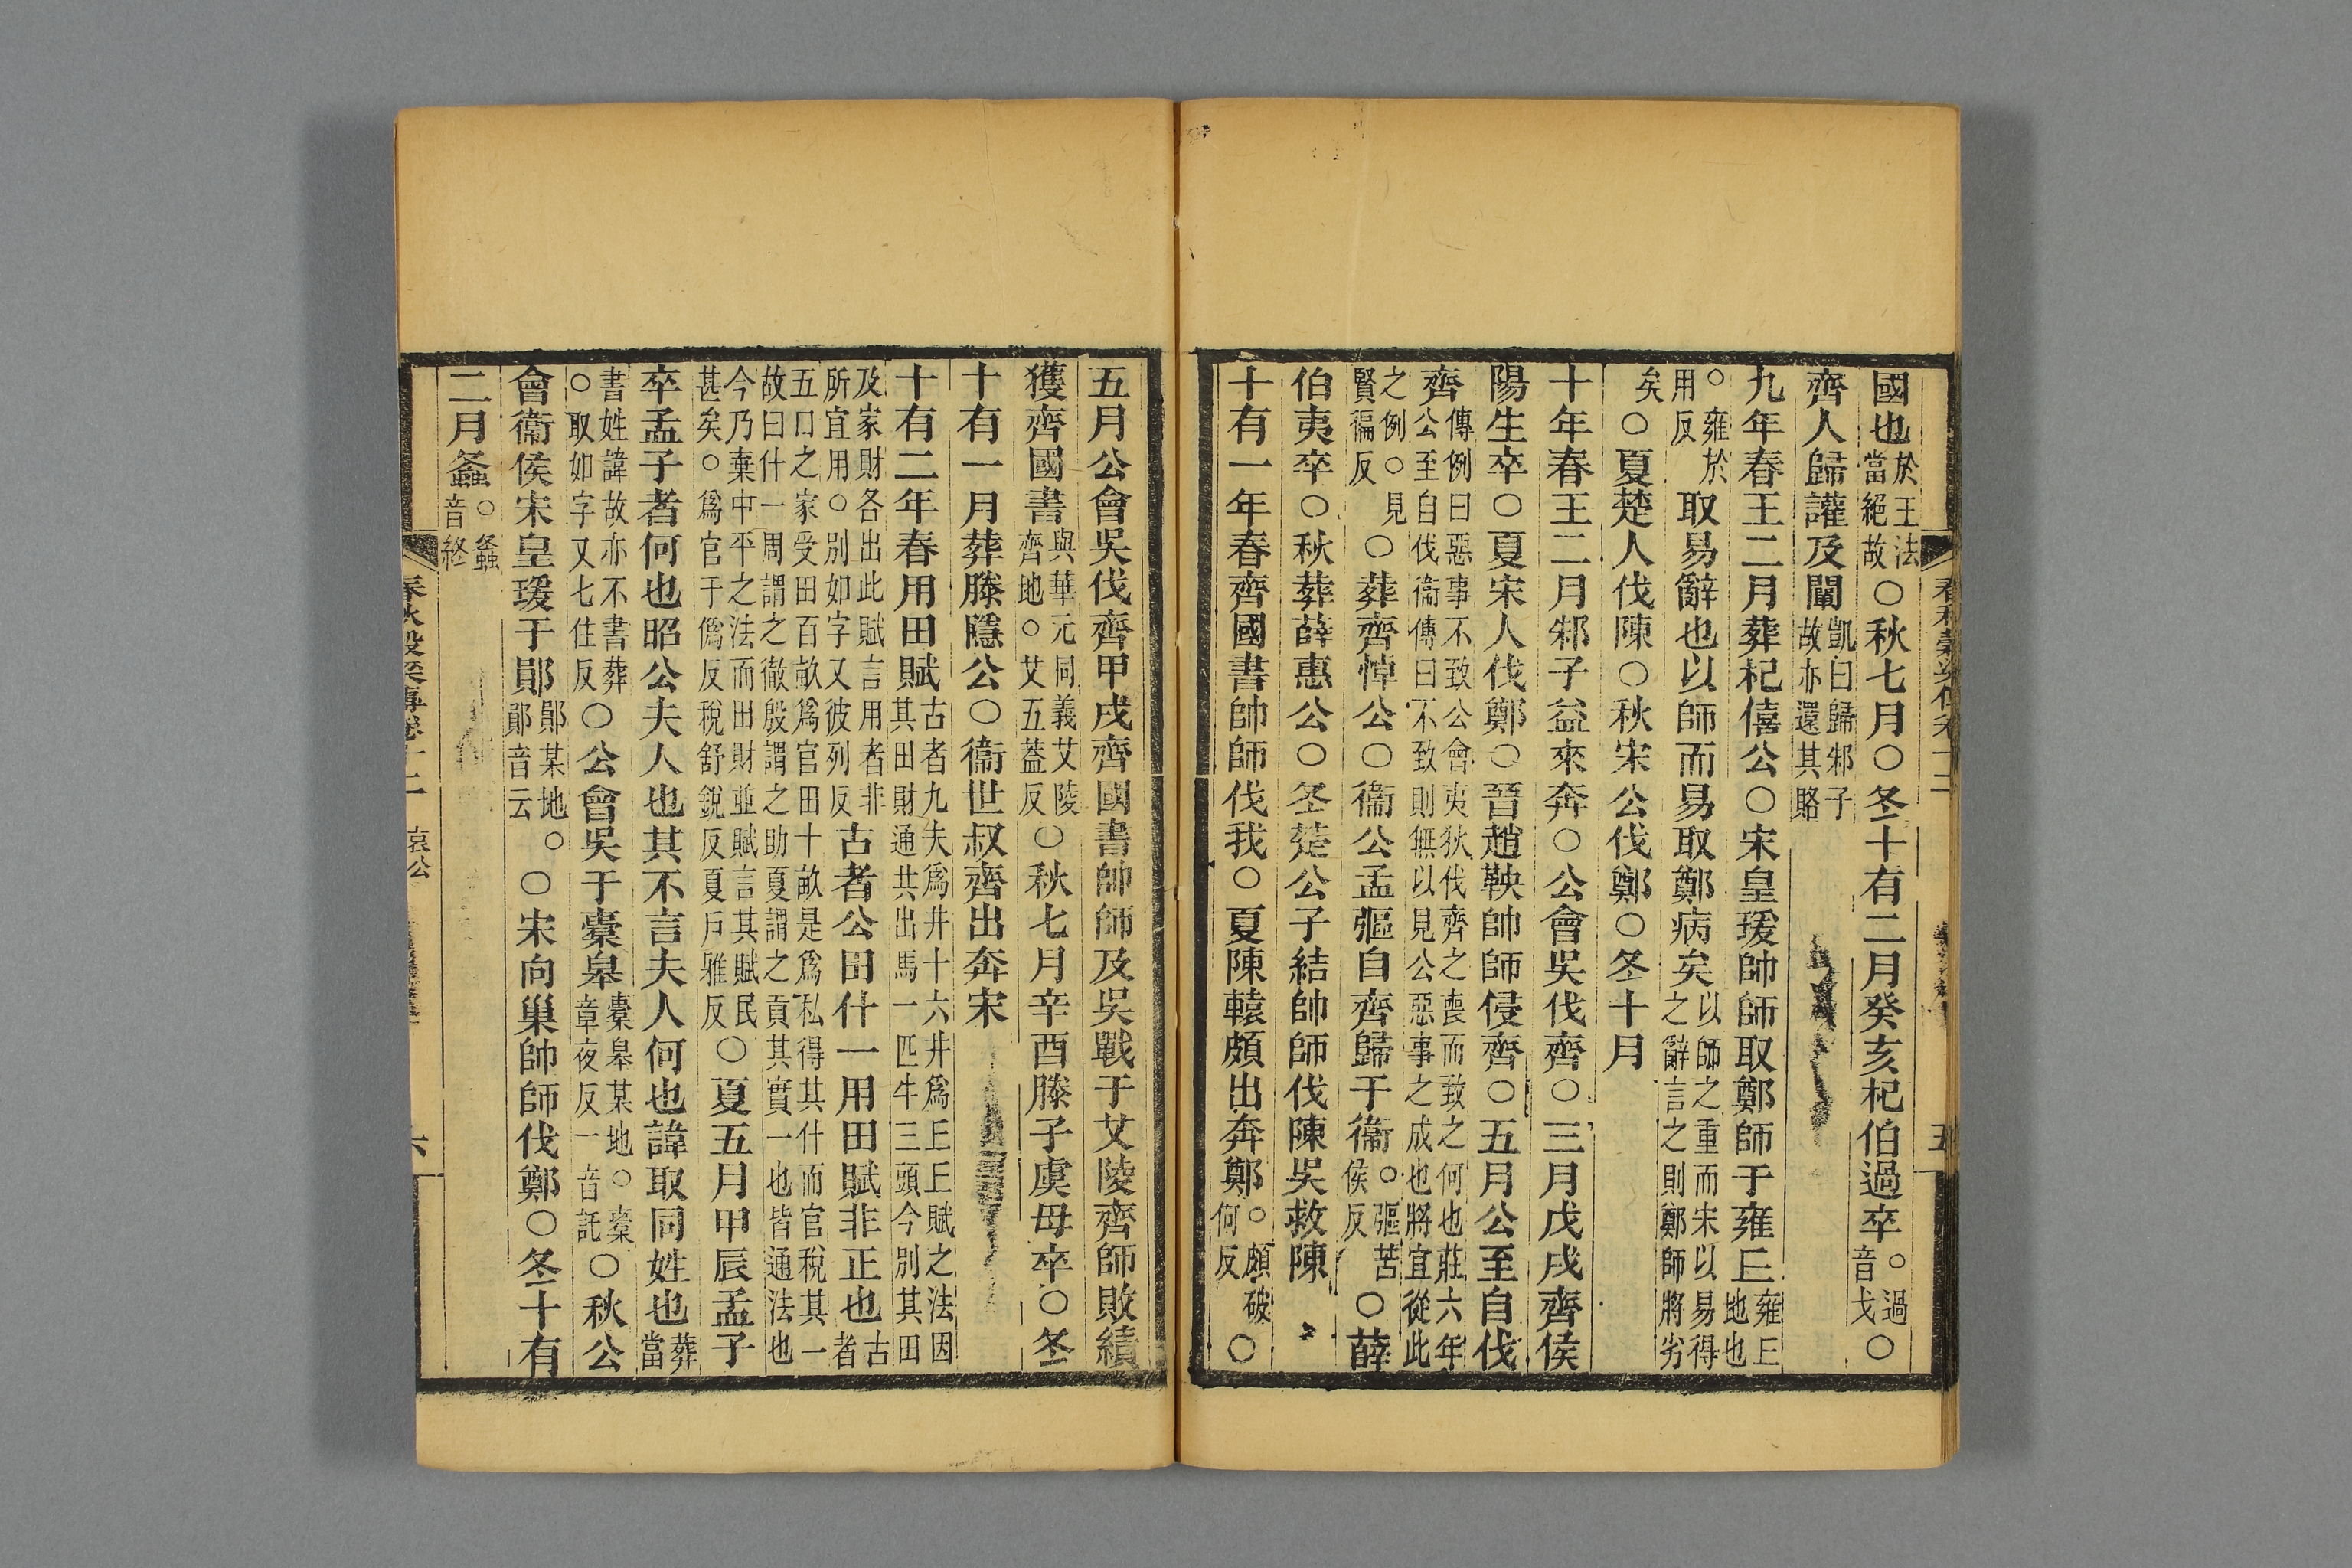 國也於王法當絕故○秋七月○冬十有二月癸亥杞伯過卒○過音戈○
齊人歸讙及闡凱曰歸邾子故亦還其賂
九年春王二月葬杞僖公○宋皇瑗帥師取鄭師于雍𠀉雍𠀉地也
○雍於用反取易辭也以師而易取鄭病矣以師之重而宋以易得之辭言之則鄭師將劣
矣○夏楚人伐陳○秋宋公伐鄭○冬十月
十年春王二月邾子益來奔○公會吳伐齊○三月戊戌齊侯
陽生卒○夏宋人伐鄭○晉趙鞅帥師侵齊○五月公至自伐
齊傳例曰惡事不致公會夷狄伐齊之喪而致之何也莊六年公至自伐衞傳曰不致則無以見公惡事之成也將宜從此
之例○見賢徧反○葬齊悼公○衞公孟彄自齊歸于衞○彄苦侯反○薛
伯夷卒○秋葬薛惠公○冬楚公子結帥師伐陳吳救陳
十有一年春齊國書帥師伐我○夏陳轅頗出奔鄭○頗破何反○
五月公會吳伐齊甲戌齊國書帥師及吳戰于艾陵齊師敗績
獲齊國書與華元同義艾陵齊地○艾五葢反○秋七月辛酉滕子虞母卒○冬
十有一月葬滕隱公○衞世叔齊出奔宋
十有二年春用田賦古者九夫爲井十六井爲𠀉𠀉賦之法因其田財通共出馬一匹牛三頭今別其田
及家財各出此賦言用者非所宜用○別如字又彼列反古者公田什一用田賦非正也古者
五口之家受田百畝爲官田十畝是爲私得其什而官稅其一故曰什一周謂之徹殷謂之助夏謂之貢其實一也皆通法也
今乃棄中平之法而田財並賦言其賦民甚矣○爲官于僞反稅舒銳反夏戸雅反○夏五月甲辰孟子
卒孟子者何也昭公夫人也其不言夫人何也諱取同姓也葬當
書姓諱故亦不書葬○取如字又七住反○公會吳于橐皋橐皋某地○橐章夜反一音託○秋公
會衞侯宋皇瑗于鄖鄖某地○鄖音云○宋向巢帥師伐鄭○冬十有
二月螽○螽音終
春秋穀梁傳卷十二 哀公 六